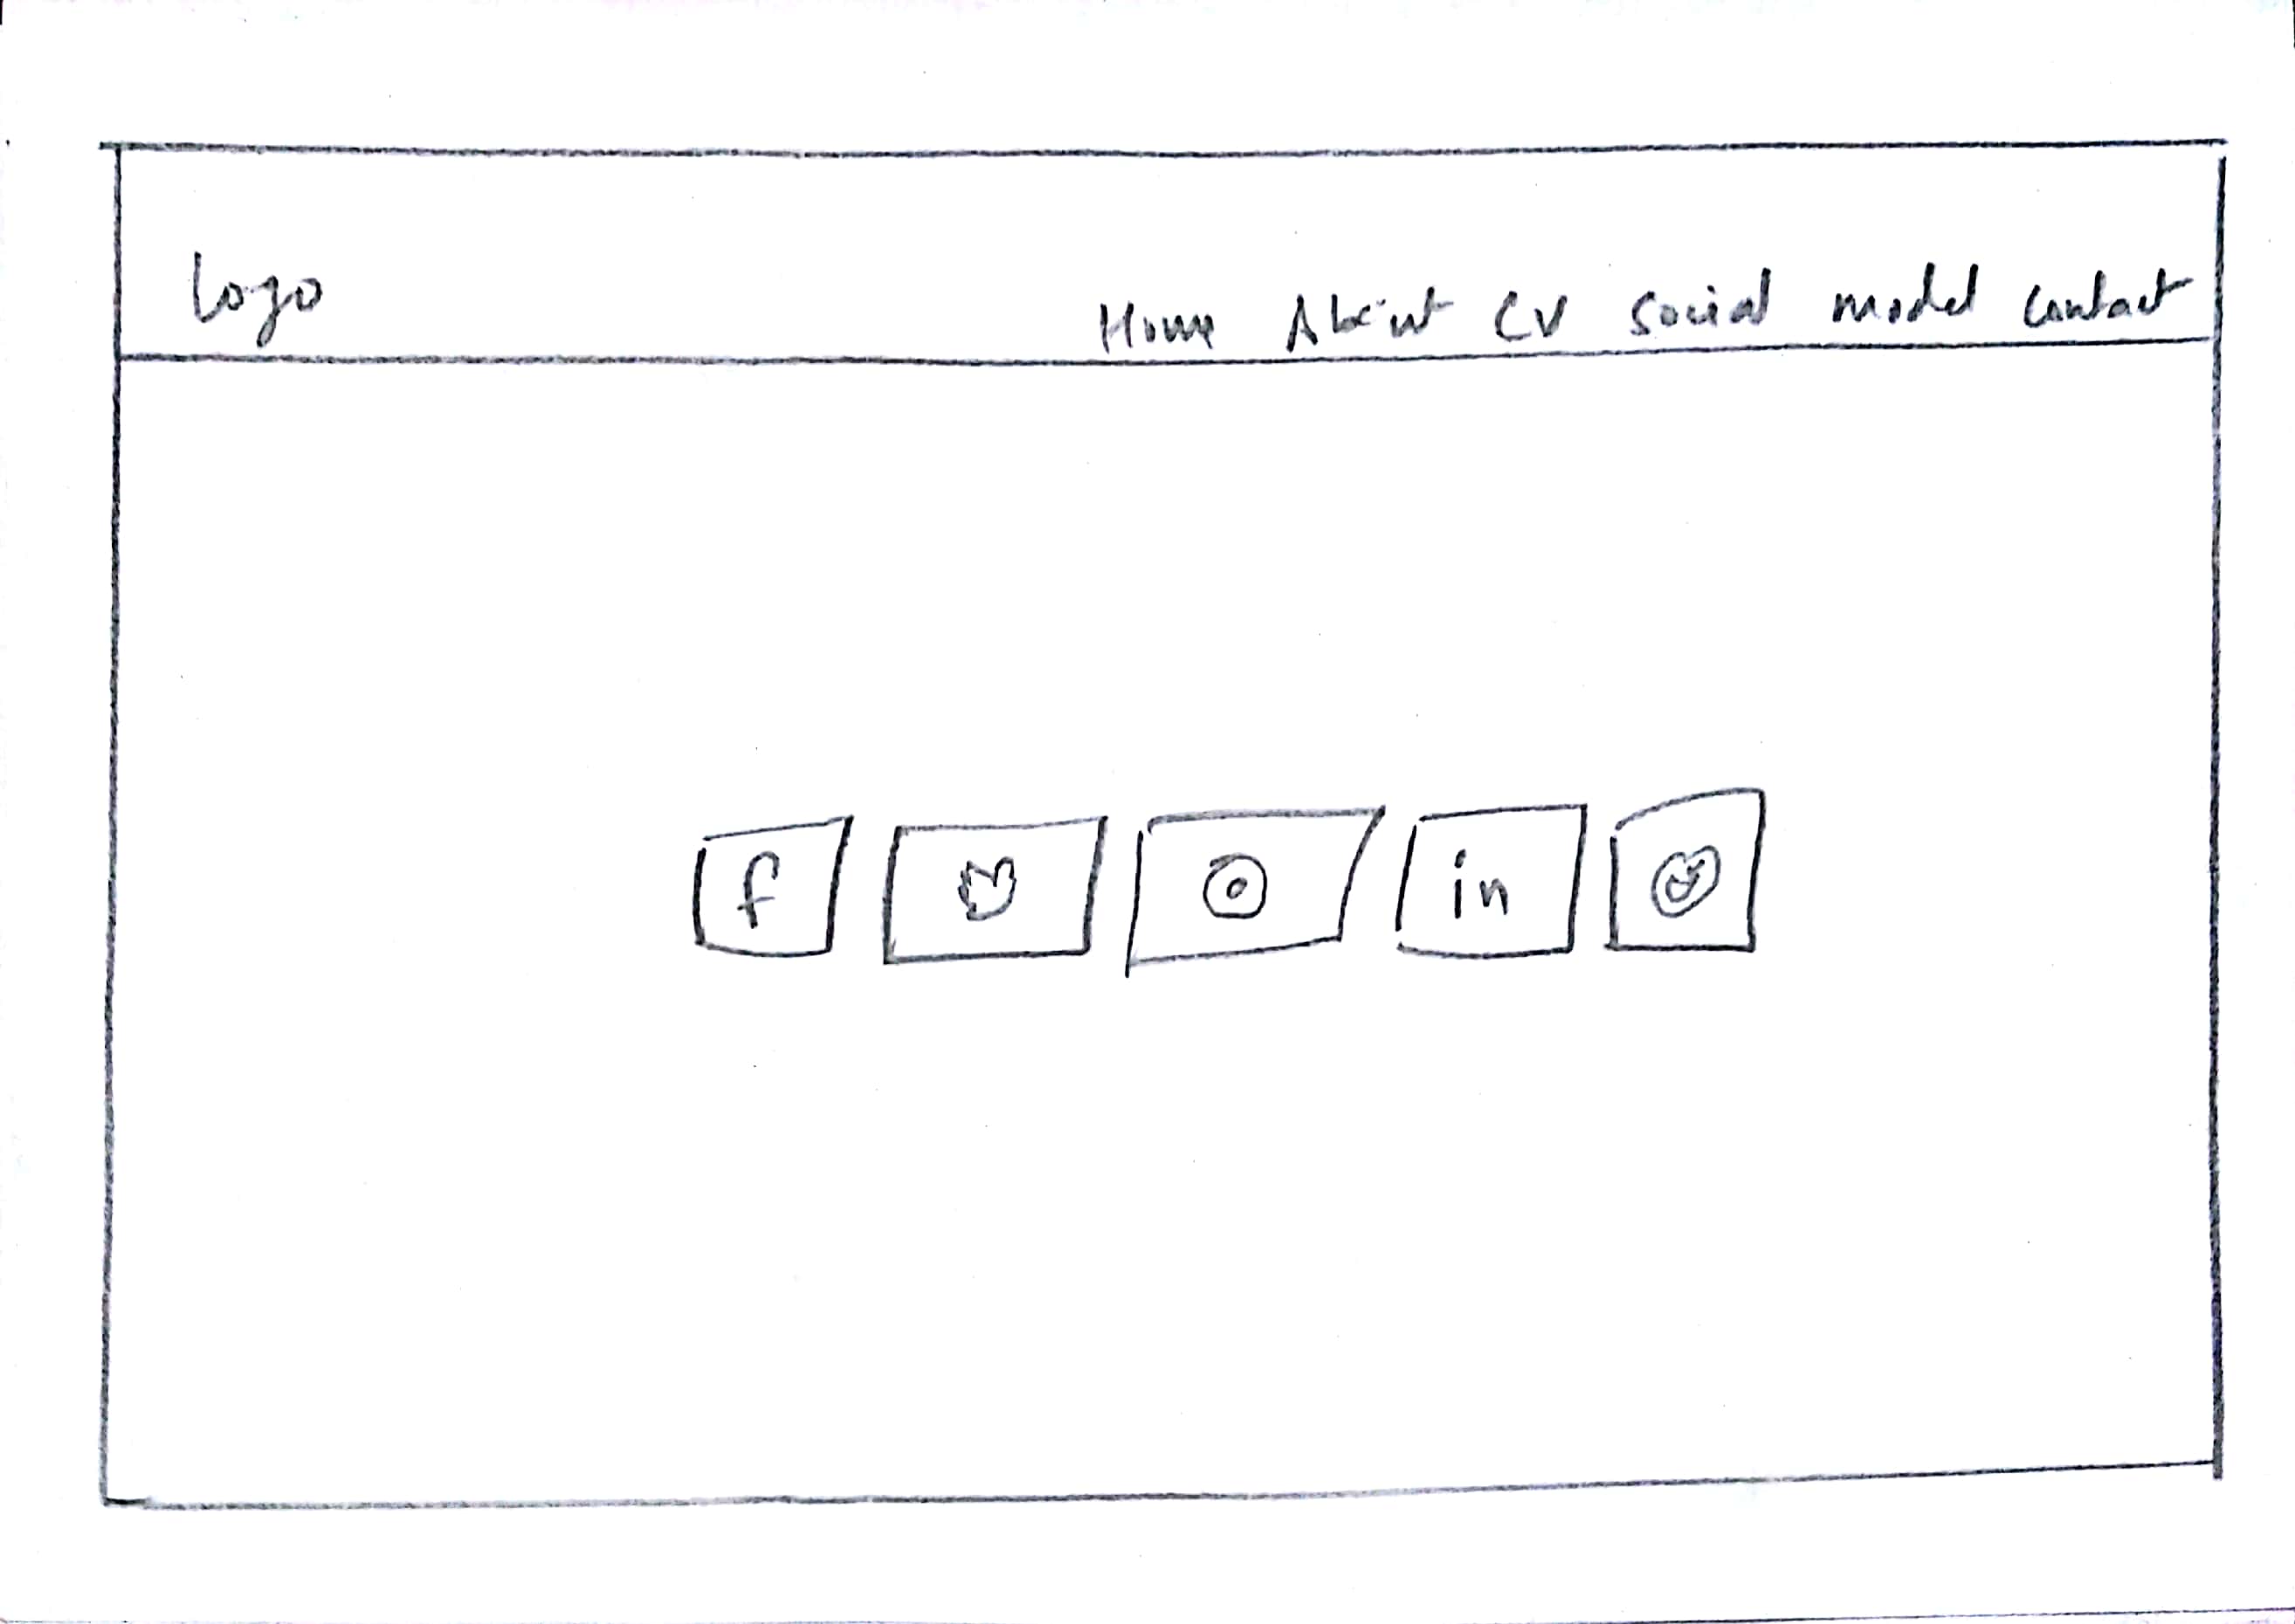 Logo
Home About CV Social model Contact
f in